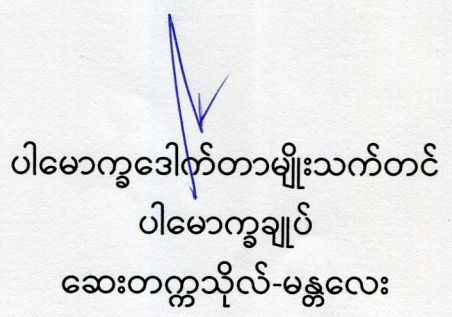 ပါမောက္ခဒေါက်တာမျိုးသက်တင်
ပါမောက္ခချုပ်
ဆေးတက္ကသိုလ်-မန္တလေး